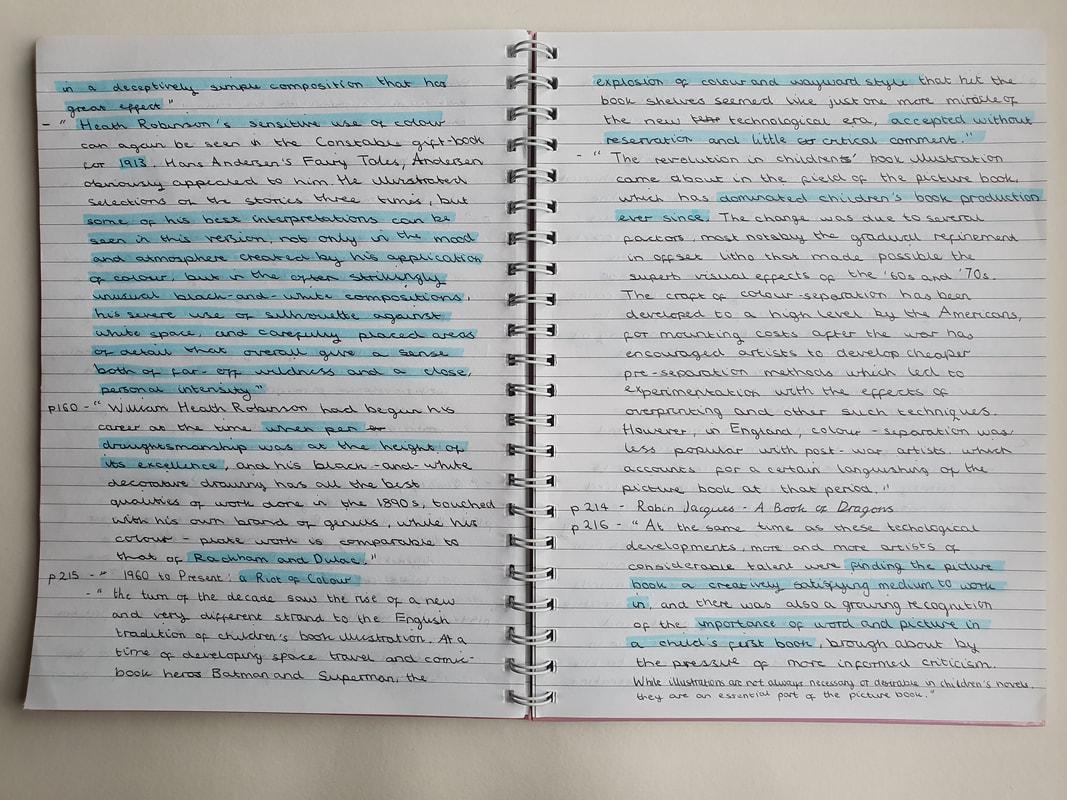 in a deceptively simple composition that has
great effect"
- " Heath Robinson's sensitive use of colour
can again be seen in the Constable gift-book
for 1913, Hans Andersen's Fairy Tales, Andersen
obviously appealed to him. He illustrated
selections of the stories three times, but
some of his best interpretations can be
seen in this version, not only in the mood
and atmosphere created by his application
of colour, but in the often strikingly
unusual black-and-white compositions,
his severe use of silhouette against
white space, and carefully placed areas
of detail that overall give a sense
both of far-off wildness and a close,
personal intensity"
p160 - " William Heath Robinson had begun his
career at the time when pen or
draughtsmanship was at the height of
its excellence, and his black-and-white
decorative drawing has all the best
qualities of work done in the 1890s, touched
with his own brand of genius, while his
colour-plate work is comparable to
that of Rackham and Dulac."
p215 - " 1960 to Present: a Riot of Colour
- " the turn of the decade saw the rise of a new
and very different strand to the English
tradition of children's book illustration. At a
time of developing space travel and comic-
book heros Batman and Superman, the
explosion of colour and wayward style that hit the
book shelves seemed like just one more miracle of
the new technological era, accepted without
reservation and little or critical comment."
- " The revolution in childrens' book illustration
came about in the field of the picture book,
which has dominated children's book production
ever since. The change was due to several
factors, most notably the gradual refinement
in offset litho that made possible the
superb visual effects of the '60s and '70s.
The craft of colour-separation has been
developed to a high level by the Americans,
for mounting costs after the war has
encouraged artists to develop cheaper
pre-separation methods which led to
experimentation with the effects of
overprinting and other such techniques.
However, in England, colour-separation was
less popular with post-war artists, which
accounts for a certain languishing of the
picture book at that period."
p214 - Robin Jacques - A Book of Dragons
p216 - " At the same time as these techological
developments, more and more artists of
considerable talent were finding the picture
book a creatively satisfying medium to work
in, and there was also a growing recognition
of the importance of word and picture in
a child's first book, brought about by
the pressure of more informed criticism.
While illustrations are not always necessary or desirable in children's novels,
they are an essential part of the picture book."